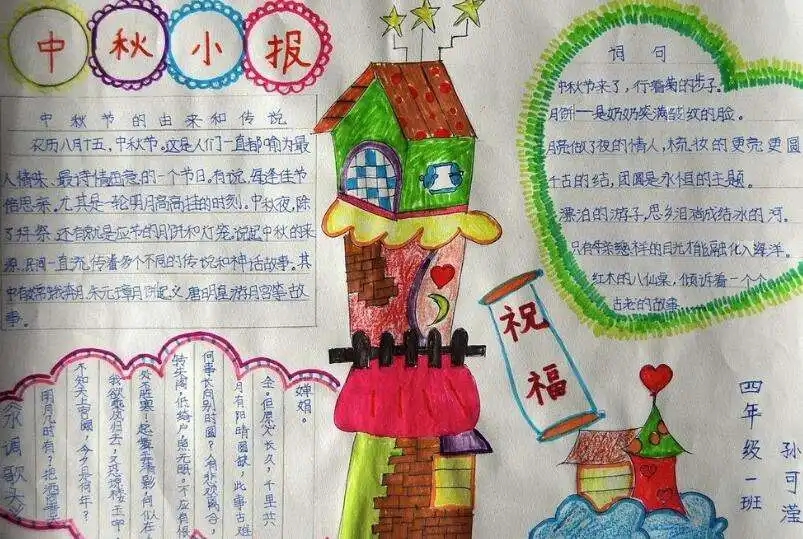 中秋小报
中秋节的由来和传说
农历八月十五，中秋节。这是人们一直都喻为最
人情味、最诗情画意的一个节日。有说，每逢佳节
倍思亲。尤其是一轮明月高高挂的时刻。中秋夜，除
了拜祭，还有就是应节的月饼和灯笼。说起中秋的来
源，民间一直流传着多个不同的传说和神话故事。其
中有嫦娥奔月、朱元璋月饼起义、唐明皇游月宫等故
事。
词句
中秋节来了，行着菊的步子。
月饼一是奶奶笑满皱纹的脸。
月亮做了夜的情人，梳妆的更亮更圆
千古的结，团圆是永恒的主题。
漂泊的游子，思乡泪滴成结冰的河。
只有母亲慈祥的目光才能融化入海洋。
红木的八仙桌，倾诉着一个个
古老的故事
祝福
水调歌头
明月几时有？把酒
不知天上宫阙，今夕是何年？
我欲乘风归去，又恐琼楼玉宇，
处不胜寒！起舞弄清影，何似在
转朱阁，低绮户，照无眠。不应有恨
何事长向别时圆？人有悲欢离合，
月有阴晴圆缺，此事古难
全。但愿人长久，千里共
婵娟。
四年级一班
孙可滢